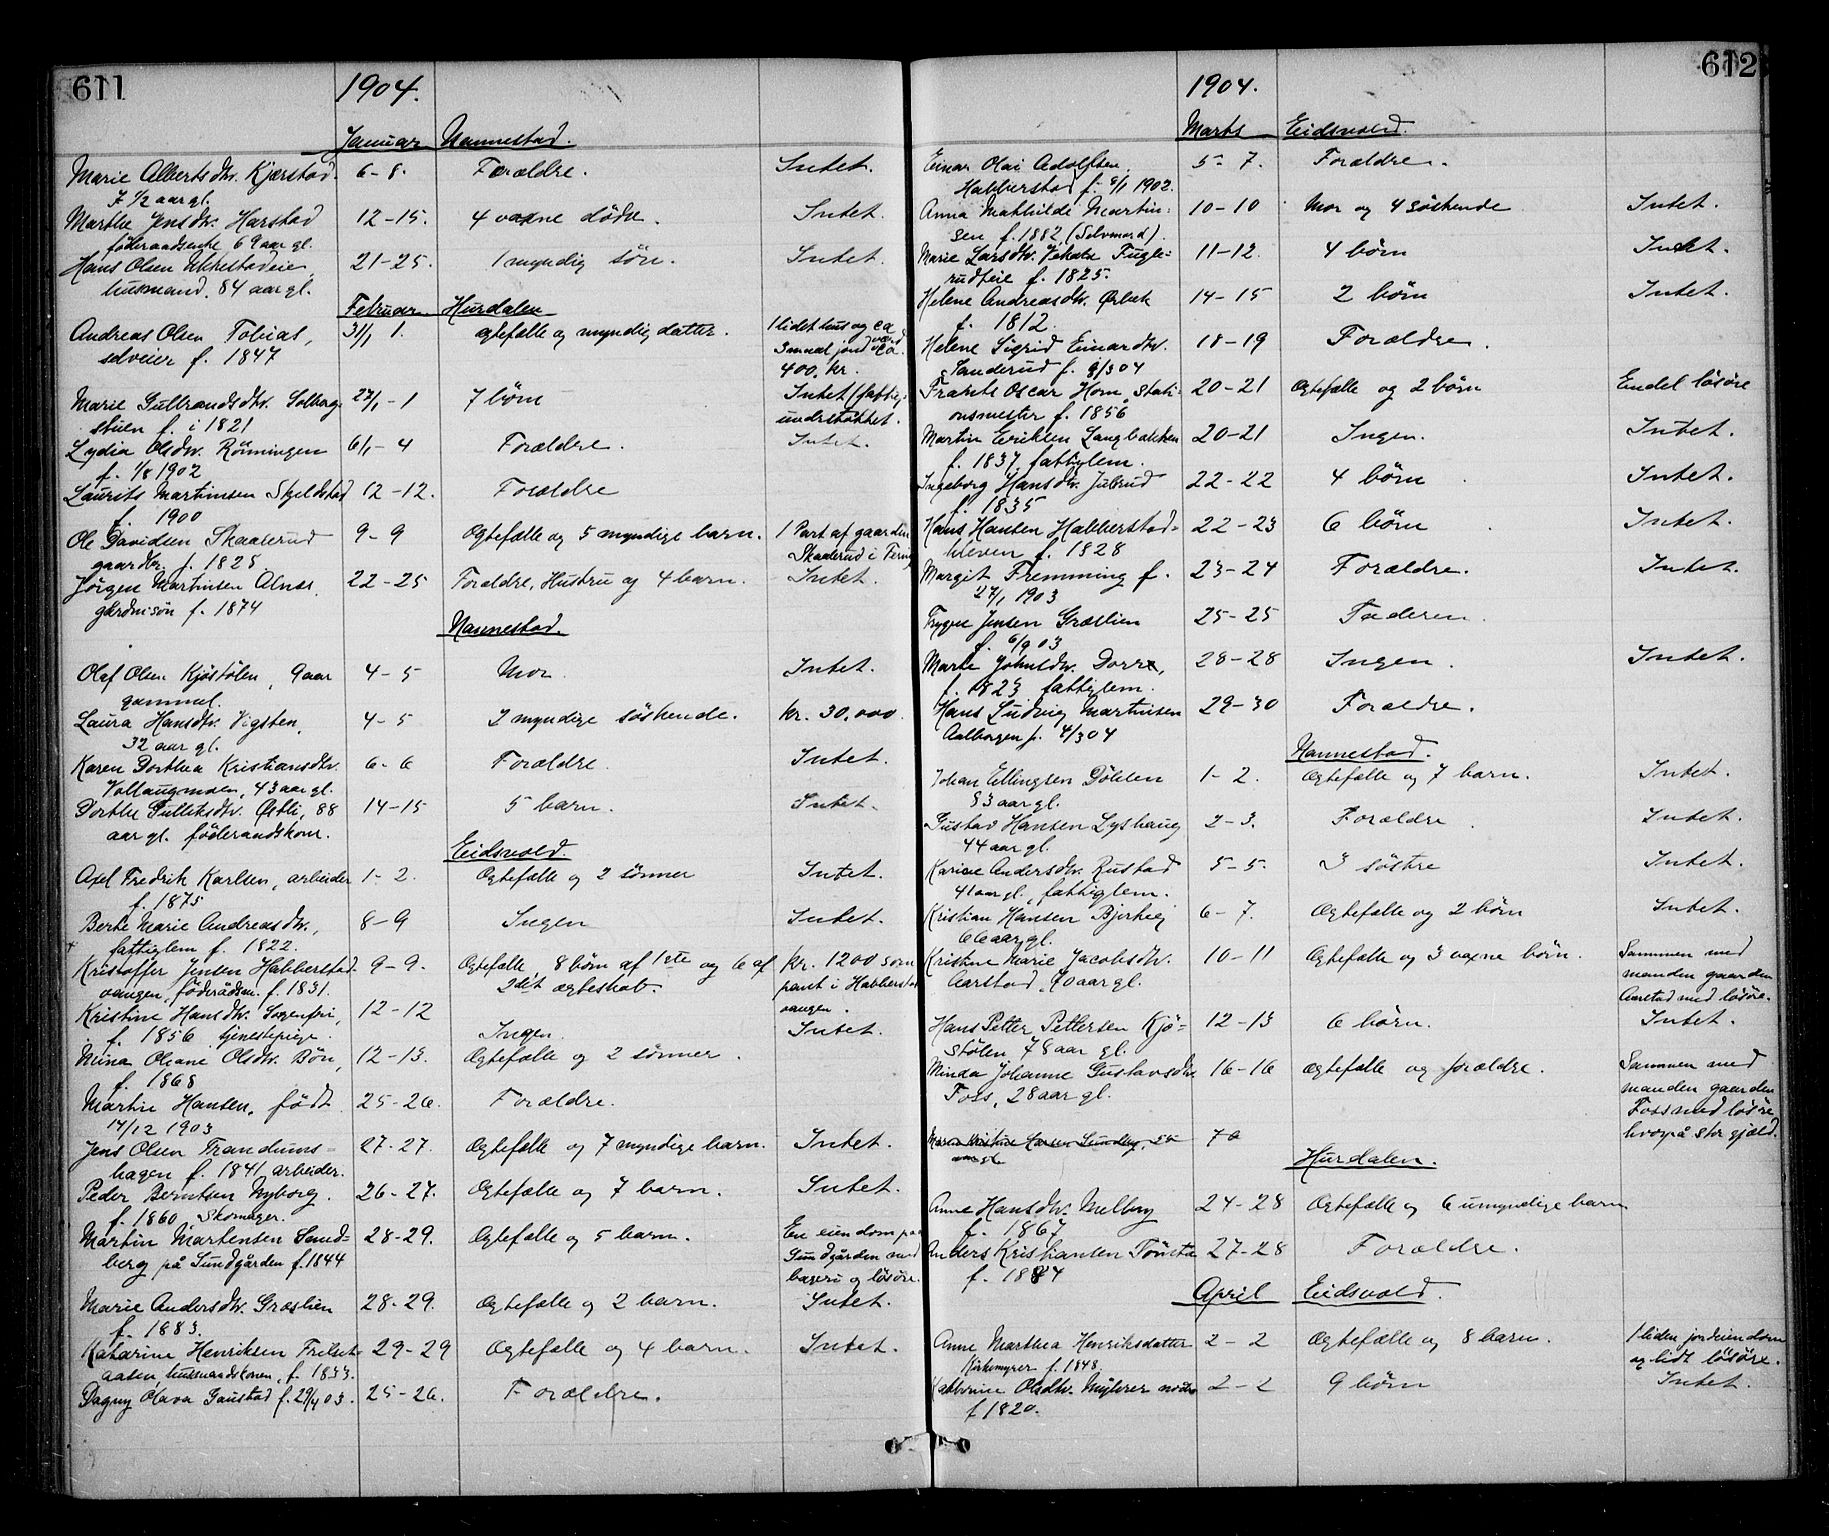 611
1904.
Januar Nannestad.
Marie Albertsdtr. Kjærstad. 6-8. Forældre. Intet.
7 1/2 aar gl.
Marthe Jensdtr. Harstad 12-15. 4 voxne døtre. Intet.
föderaadsenke 69 aar gl.
Hans Olsen 21-25. 1 myndig sön. Intet.
husmand, 84 aar gl.
Februar. Hurdalen
Andreas Olsen Tobias, 31/1 1. ægtefælle og myndig datter. 1 lidet hus og ca
selveier f. 1847 3 maal jord værd ca.
400 kr.
Marie Gulbrandsdtr. Solberg- 27/1 - 1 7 børn Intet (fattig-
stuen f. i 1821 understøttet.
Lydia Olsdtr. Rönningen 6/1 - 4 Forældre. Intet.
f. 1/8 1902
Laurits Martinsen Skjeldstad 12-12. Forældre
f. 1900
Ole Davidsen Skaalerud 9-9 Ægtefælle og 5 myndige barn. 1 Part af gaarden
gaardbr. f. 1825 Skaalerud i
Jörgen Martinsen Alnæs, 22-25 Forældre, Hustru og 4 barn. Intet.
gårdmisön f. 1874
Nannestad.
Olaf Olsen Kjöstölen, 9 aar 4-5 Mor. Intet.
gammel.
Laura Hansdtr. Vigsten, 4-5 2 myndige söskende. kr. 30.000.
32 aar gl.
Karen Dorthea Kristiansdtr. 6-6 Forældre. Intet.
Vollaugmoen, 43 aar gl.
Dorthe Gulliksdtr. Østli, 88 14-15 5 barn. Intet.
aar gl. föderaadskone.
Eidsvold.
Axel Fredrik Karlsen, arbeider 1-2. Ægtefælle og 2 sönner Intet.
f. 1875
Berte Marie Andreasdtr., 8-9 Ingen Intet.
fattiglem f. 1822.
Kristoffer Jensen Habberstad 9-9. Ægtefælle, 8 börn af 1ste og 6 af kr. 1200 som
vangen, föderådsm. f. 1831. 2det ægteskab. pant i Habberstad
Kristine Hansdtr. Sorgenfri, 12-12 vangen.
f. 1856 tjenestepige. Ingen. Intet.
Mina Oliane Olsdtr. Bön, 12-13. Ægtefælle og 2 sönner.
f. 1868
Martin Hansen, født 25-26. Forældre.
14/12 1903
Jens Olsen Trandums- 27-27. Ægtefælle og 7 myndige barn. Intet.
hagen f. 1841, arbeider.
Peder Berntsen Nyborg. 26-27. Ægtefælle og 7 barn. Intet.
f. 1860 Skomager.
Martin Martensen Sand- 28-29. Ægtefælle og 5 barn. En eiendom på
berg på Sundgården f. 1844 Sundgården med
bageri og lösöre.
Marie Andersdtr. Græslien 28-29. Ægtefælle og 2 barn. Intet.
f. 1883.
Katarine Henriksen Frilset- 29-29 Ægtefælle og 4 barn. Intet.
aasen, husmandskonen, f. 1833.
Dagny Olava Gaustad f. 29/4 03. 25-26. Forældre.
612
1904.
Marts Eidsvold.
Einar Olai Adolfsen 5-7. Forældre.
Habberstad f. 9/1 1902.
Anna Mathilde Martin- 10-10 Mor og 4 söskende Intet.
sen f. 1882 (Selvmord).
Marie Larsdtr. Fugle- 11-12. 4 börn Intet.
rudeie f. 1825.
Helene Andreasdtr. Ørbek 14-15 2 börn Intet.
f. 1812.
Helene Sigrid Einarsdtr. 18-19 Forældre.
Sanderud f. 8/3 04
Frants Oscar Horn, stati- 20-21 Ægtefælle og 2 börn Endel lösöre
onsmester f. 1856
Martin Eriksen Langbakken 20-21 Ingen. Intet.
f. 1837, fattiglem.
Ingeborg Hansdtr. Julsrud 22-22 4 börn Intet.
f. 1835
Hans Hansen Habberstad- 22-23 6 börn Intet.
kleven f. 1828
Margit Fremming f. 23-24 Forældre. Intet.
27/1 1903
Trygve Jensen Græslien 25-25 Faderen.
f. 6/9 03
Marte Johnsdtr. Dorre, 28-28 Ingen. Intet.
f. 1823 fattiglem.
Hans Ludvig Martinsen 29-30 Forældre.
Aalborgen f. 4/3 04
Nannestad.
Johan Ellingsen Dölelen 1-2. Ægtefælle og 7 barn. Intet.
83 aar gl.
Gustav Hansen Lyshaug 2-3. Forældre. Intet.
44 aar gl.
Karine Andersdtr. Rustad 5-5. 3 söstre Intet.
41 aar gl., fattiglem.
Kristian Hansen Bjerkeg 6-7. Ægtefælle og 2 börn Intet.
66 aar gl.
Kristine Marie Jacobsdtr. 10-11 Ægtefælle og 3 voxne börn. Sammen med
Aarstad, 70 aar gl. manden gaarden
Aarstad med lösöre.
Hans Petter Pettersen Kjö- 12-13 6 börn. Intet.
stölen 78 aar gl.
Minda Johanne Gustavsdtr. 16-16 ægtefælle og forældre. Sammen med
Foss, 28 aar gl. manden gaarden
Foss med lösöre
Maren Kristine Larsen Sundby, 55 7a hvorpå stor gjæld.
aar gl.
Hurdalen.
Anne Hansdtr. Melby 24-28 Ægtefælle og 6 umyndige barn
f. 1867
Anders Kristiansen Tömte 27-28 Forældre.
f. 1884
April Eidsvold.
Anne Marthea Henriksdatter 2-2 Ægtefælle og 8 barn. 1 liden jordeiendom
Kirkemyren f. 1848. og lidt lösöre.
Kathrine Olsdtr. Myhrer nordre 2-2 9 börn Intet.
f. 1820.